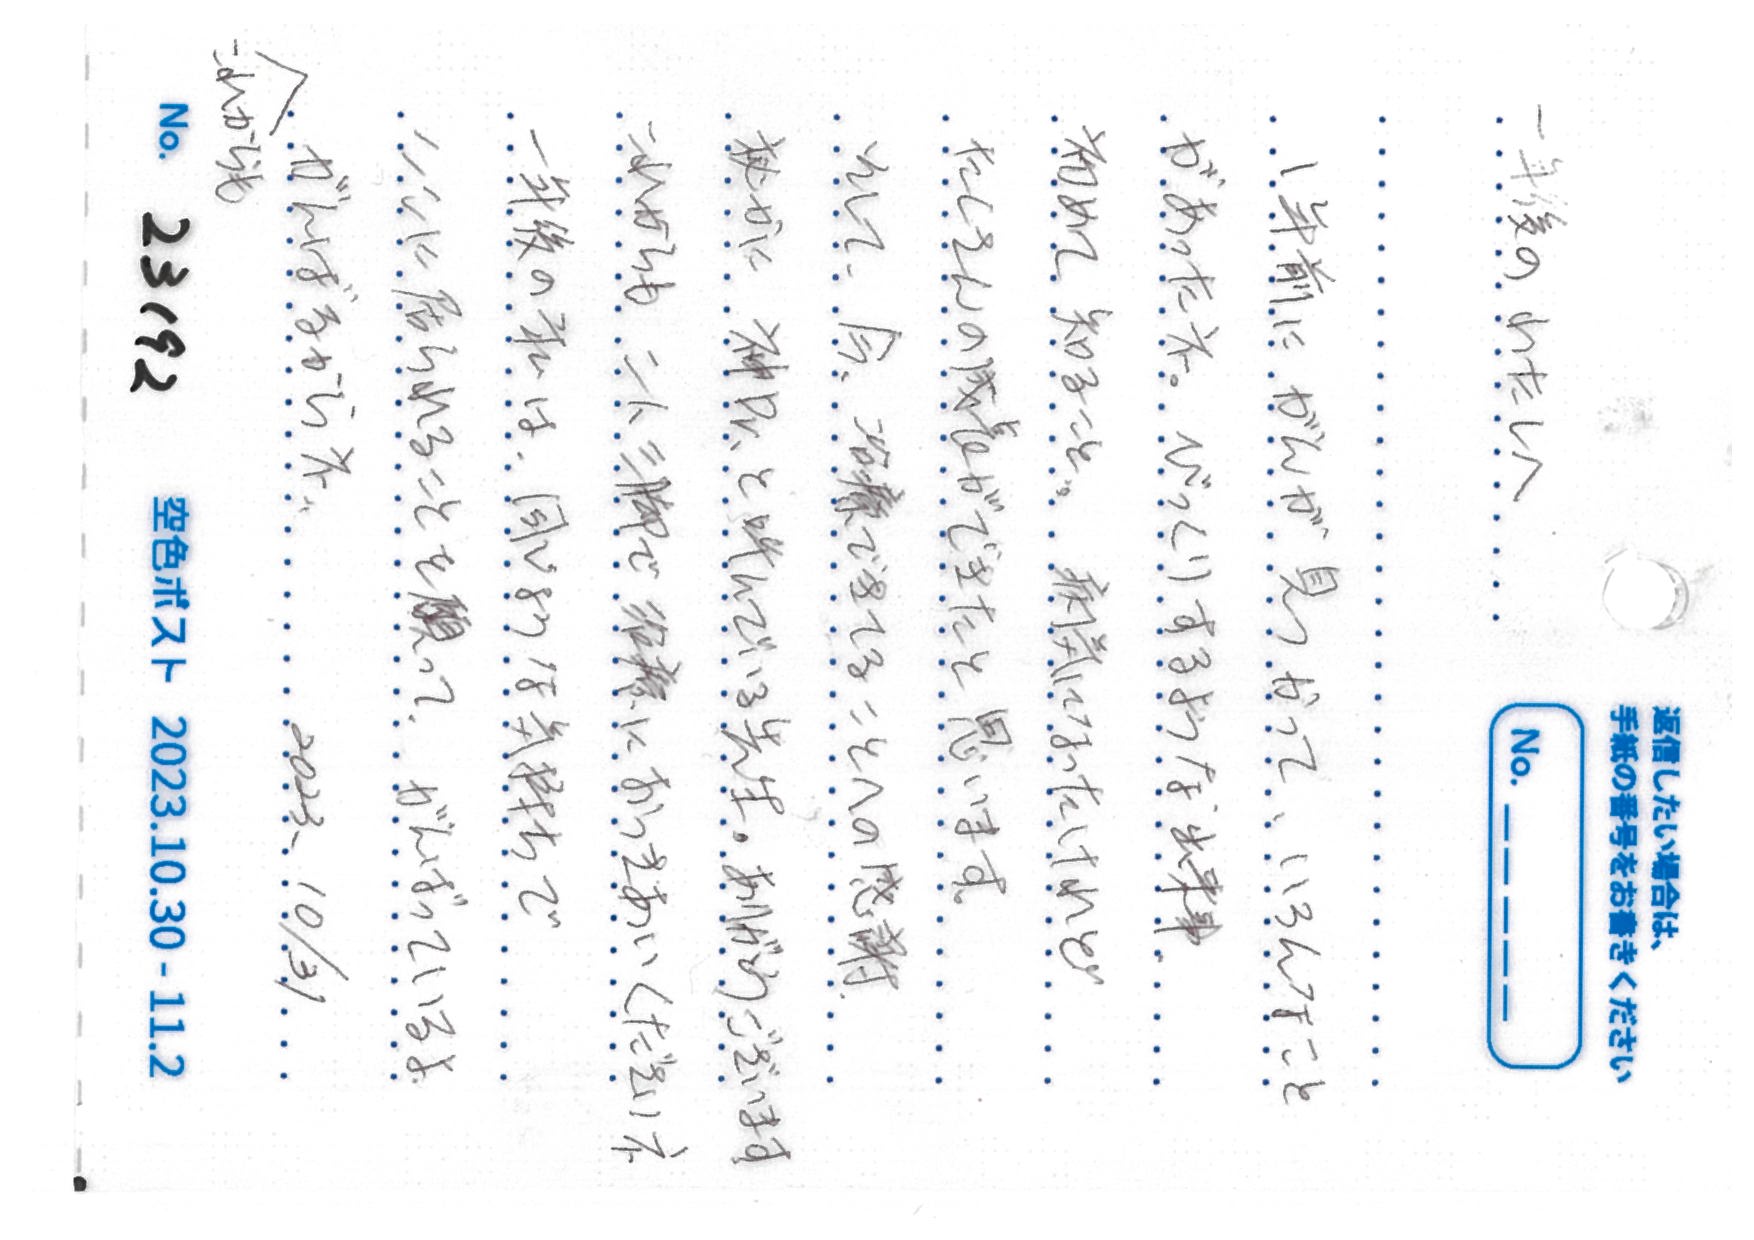 返信したい場合は、
手紙の番号をお書きください
No. _ _ _ _ _
一年後の わたしへ
1年前に がんが 見つかって、いろんなこと
があったネ。びっくりするような出来事
初めて 知ること。 病気になったけれど
たくさんの成長ができたと 思います。
そして、今、治療できてることへの感謝
秘かに 神Dr、と呼んでいる先生。ありがとうございます
これからも 二人三脚で 治療におつきあいくださいネ
一年後の私は、同じような気持ちで
ここに居られることを願って、がんばっているよ
がんばるからネ。 2023、10/31
これからも
No. 23192 空色ポスト 2023.10.30 - 11.2